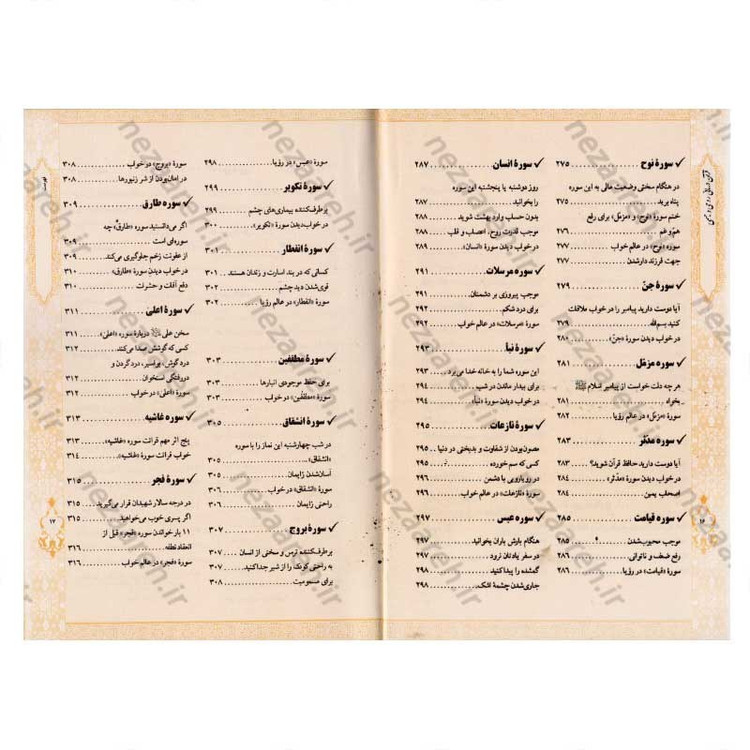 ✓ سورهٔ نوح ۲۷۵
در هنگام سختی وضعیت مالی به این سوره
پناه برید ........ ۲۷۵
ختم سورهٔ «نوح» و «مزمل» برای رفع
هم و غم ........ ۲۷۶
سورهٔ «نوح» در عالم خواب ........ ۲۷۷
جهت فرزند دار شدن ........ ۲۷۷
✓ سورهٔ جنّ ۲۷۹
آیا دوست دارید پیامبر را در خواب ملاقات
کنید بسم‌الله ........ ۲۷۹
در خواب دیدن سورهٔ «جنّ» ........ ۲۸۰
✓ سوره مزمّل ۲۸۱
هر چه دلت خواست از پیامبر اسلام ﷺ
بخواه ........ ۲۸۱
سورهٔ «مزمّل» در عالم رؤیا ........ ۲۸۲
✓ سوره مدثّر ۲۸۳
آیا دوست دارید حافظ قرآن شوید؟ ........ ۲۸۳
در خواب دیدن سورهٔ «مدّثر» ........ ۲۸۴
اصحاب یمین ........ ۲۸۴
✓ سوره قیامت ۲۸۵
موجب محبوب‌شدن ........ ۲۸۵
رفع ضعف و ناتوانی ........ ۲۸۶
سورهٔ «قیامت» در رؤیا ........ ۲۸۶
✓ سورهٔ انسان ۲۸۷
روز دوشنبه یا پنجشنبه این سوره
را بخوانید ........ ۲۸۷
بدون حساب وارد بهشت شوید ........ ۲۸۸
موجب قدرت روح، اعصاب و قلب ........ ۲۸۸
در خواب دیدن سورهٔ «انسان» ........ ۲۸۹
✓ سوره مرسلات ۲۹۱
موجب پیروزی بر دشمنان ........ ۲۹۱
برای درد شکم ........ ۲۹۲
سورهٔ «مرسلات» در عالم خواب ........ ۲۹۲
✓ سورهٔ نبأ ۲۹۳
این سوره شما را به خانه خدا می‌برد ........ ۲۹۳
برای بیدار ماندن در شب ........ ۲۹۴
در خواب دیدن سورهٔ «نبأ» ........ ۲۹۴
✓ سوره نازعات ۲۹۵
مصون‌بودن از شقاوت و بدبختی در دنیا ۲۹۵
کسی که سم خورده ........ ۲۹۵
در رویارویی با دشمن ........ ۲۹۶
سورهٔ «نازعات» در عالم خواب ........ ۲۹۶
✓ سوره عبس ۲۹۷
هنگام بارش باران بخوانید ........ ۲۹۷
در سفر یادتان نرود ........ ۲۹۷
گمشده را پیدا کنید ........ ۲۹۸
جاری‌شدن چشمهٔ اشک ........ ۲۹۸
۱۶
سورهٔ «عبس» در رؤیا ........ ۲۹۸
✓ سورهٔ تکویر ۲۹۹
برطرف‌کننده بیماری‌های چشم ........ ۲۹۹
در خواب‌دیدن سورهٔ «تکویر» ........ ۳۰۰
✓ سورهٔ انفطار ۳۰۱
کسانی که در بند اسارت و زندان هستند . ۳۰۱
قوی‌شدن دید چشم ........ ۳۰۲
سورهٔ «انفطار» در عالم رؤیا ........ ۳۰۲
✓ سورهٔ مطففین ۳۰۳
برای حفظ موجودی انبارها ........ ۳۰۳
سورهٔ «مطفّفین» در خواب ........ ۳۰۳
✓ سورهٔ انشقاق ۳۰۵
در شب چهارشنبه این نماز را با سوره
«انشقاق» ........ ۳۰۵
آسان‌شدن زایمان ........ ۳۰۵
سورهٔ «انشقاق» در خواب ........ ۳۰۶
راحتی زایمان ........ ۳۰۶
✓ سورهٔ بروج ۳۰۷
برطرف‌کننده ترس و سختی از انسان ... ۳۰۷
به راحتی کودک را از شیر جدا کنید ........ ۳۰۷
برای مسمومیت ........ ۳۰۸
سورهٔ «بروج» در خواب ........ ۳۰۸
در امان‌بودن از شر زنبورها ........ ۳۰۸
✓ سوره طارق ۳۰۹
اگر می‌دانستید سوره «طارق» چه
سوره‌ای است ........ ۳۰۹
از عفونت زخم جلوگیری می‌کند ........ ۳۰۹
در خواب دیدن سورهٔ «طارق» ........ ۳۱۰
دفع آفات و حشرات ........ ۳۱۰
✓ سورهٔ اعلی ۳۱۱
سخن علی دربارهٔ سوره «اعلی» ........ ۳۱۱
کسی که گوشش صدا می‌کند ........ ۳۱۲
درد گوش، بواسیر، درد گردن و
دررفتگی استخوان ........ ۳۱۲
سورهٔ «اعلی» در خواب ........ ۳۱۲
✓ سوره غاشیه ۳۱۳
پنج اثر مهم قرائت سوره «غاشیه» ........ ۳۱۳
خواب قرائت سورهٔ «غاشیه» ........ ۳۱۴
✓ سورهٔ فجر ۳۱۵
در درجه سالار شهیدان قرار می‌گیرید .. ۳۱۵
اگر پسری خوب می‌خواهید ........ ۳۱۵
۱۱ بار خواندن سوره «فجر» قبل از
انعقاد نطفه ........ ۳۱۶
سورهٔ «فجر» در عالم خواب ........ ۳۱۶
فهرست
۱۷
nezaareh.ir